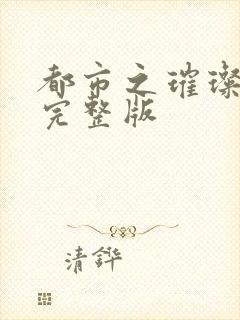 都市之璀璨
完整版
清鏵